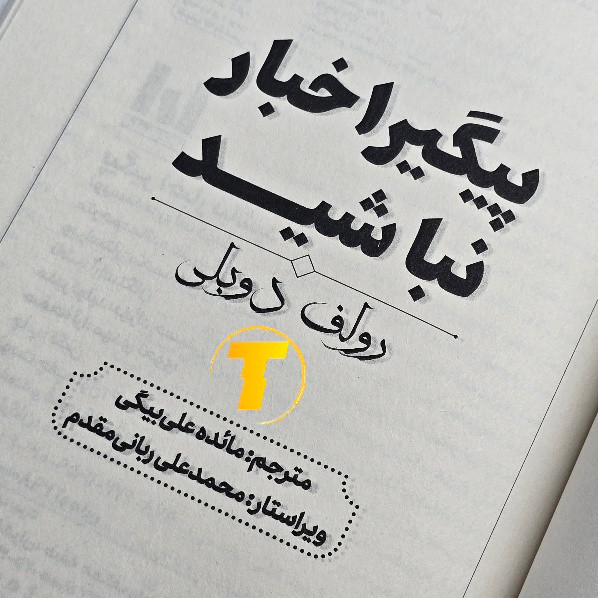 پیگیر اخبار
نباشید
رولف دوبلی
T
مترجم: مائده علی‌بیگی
ویراستار: محمدعلی ربانی‌مقدم